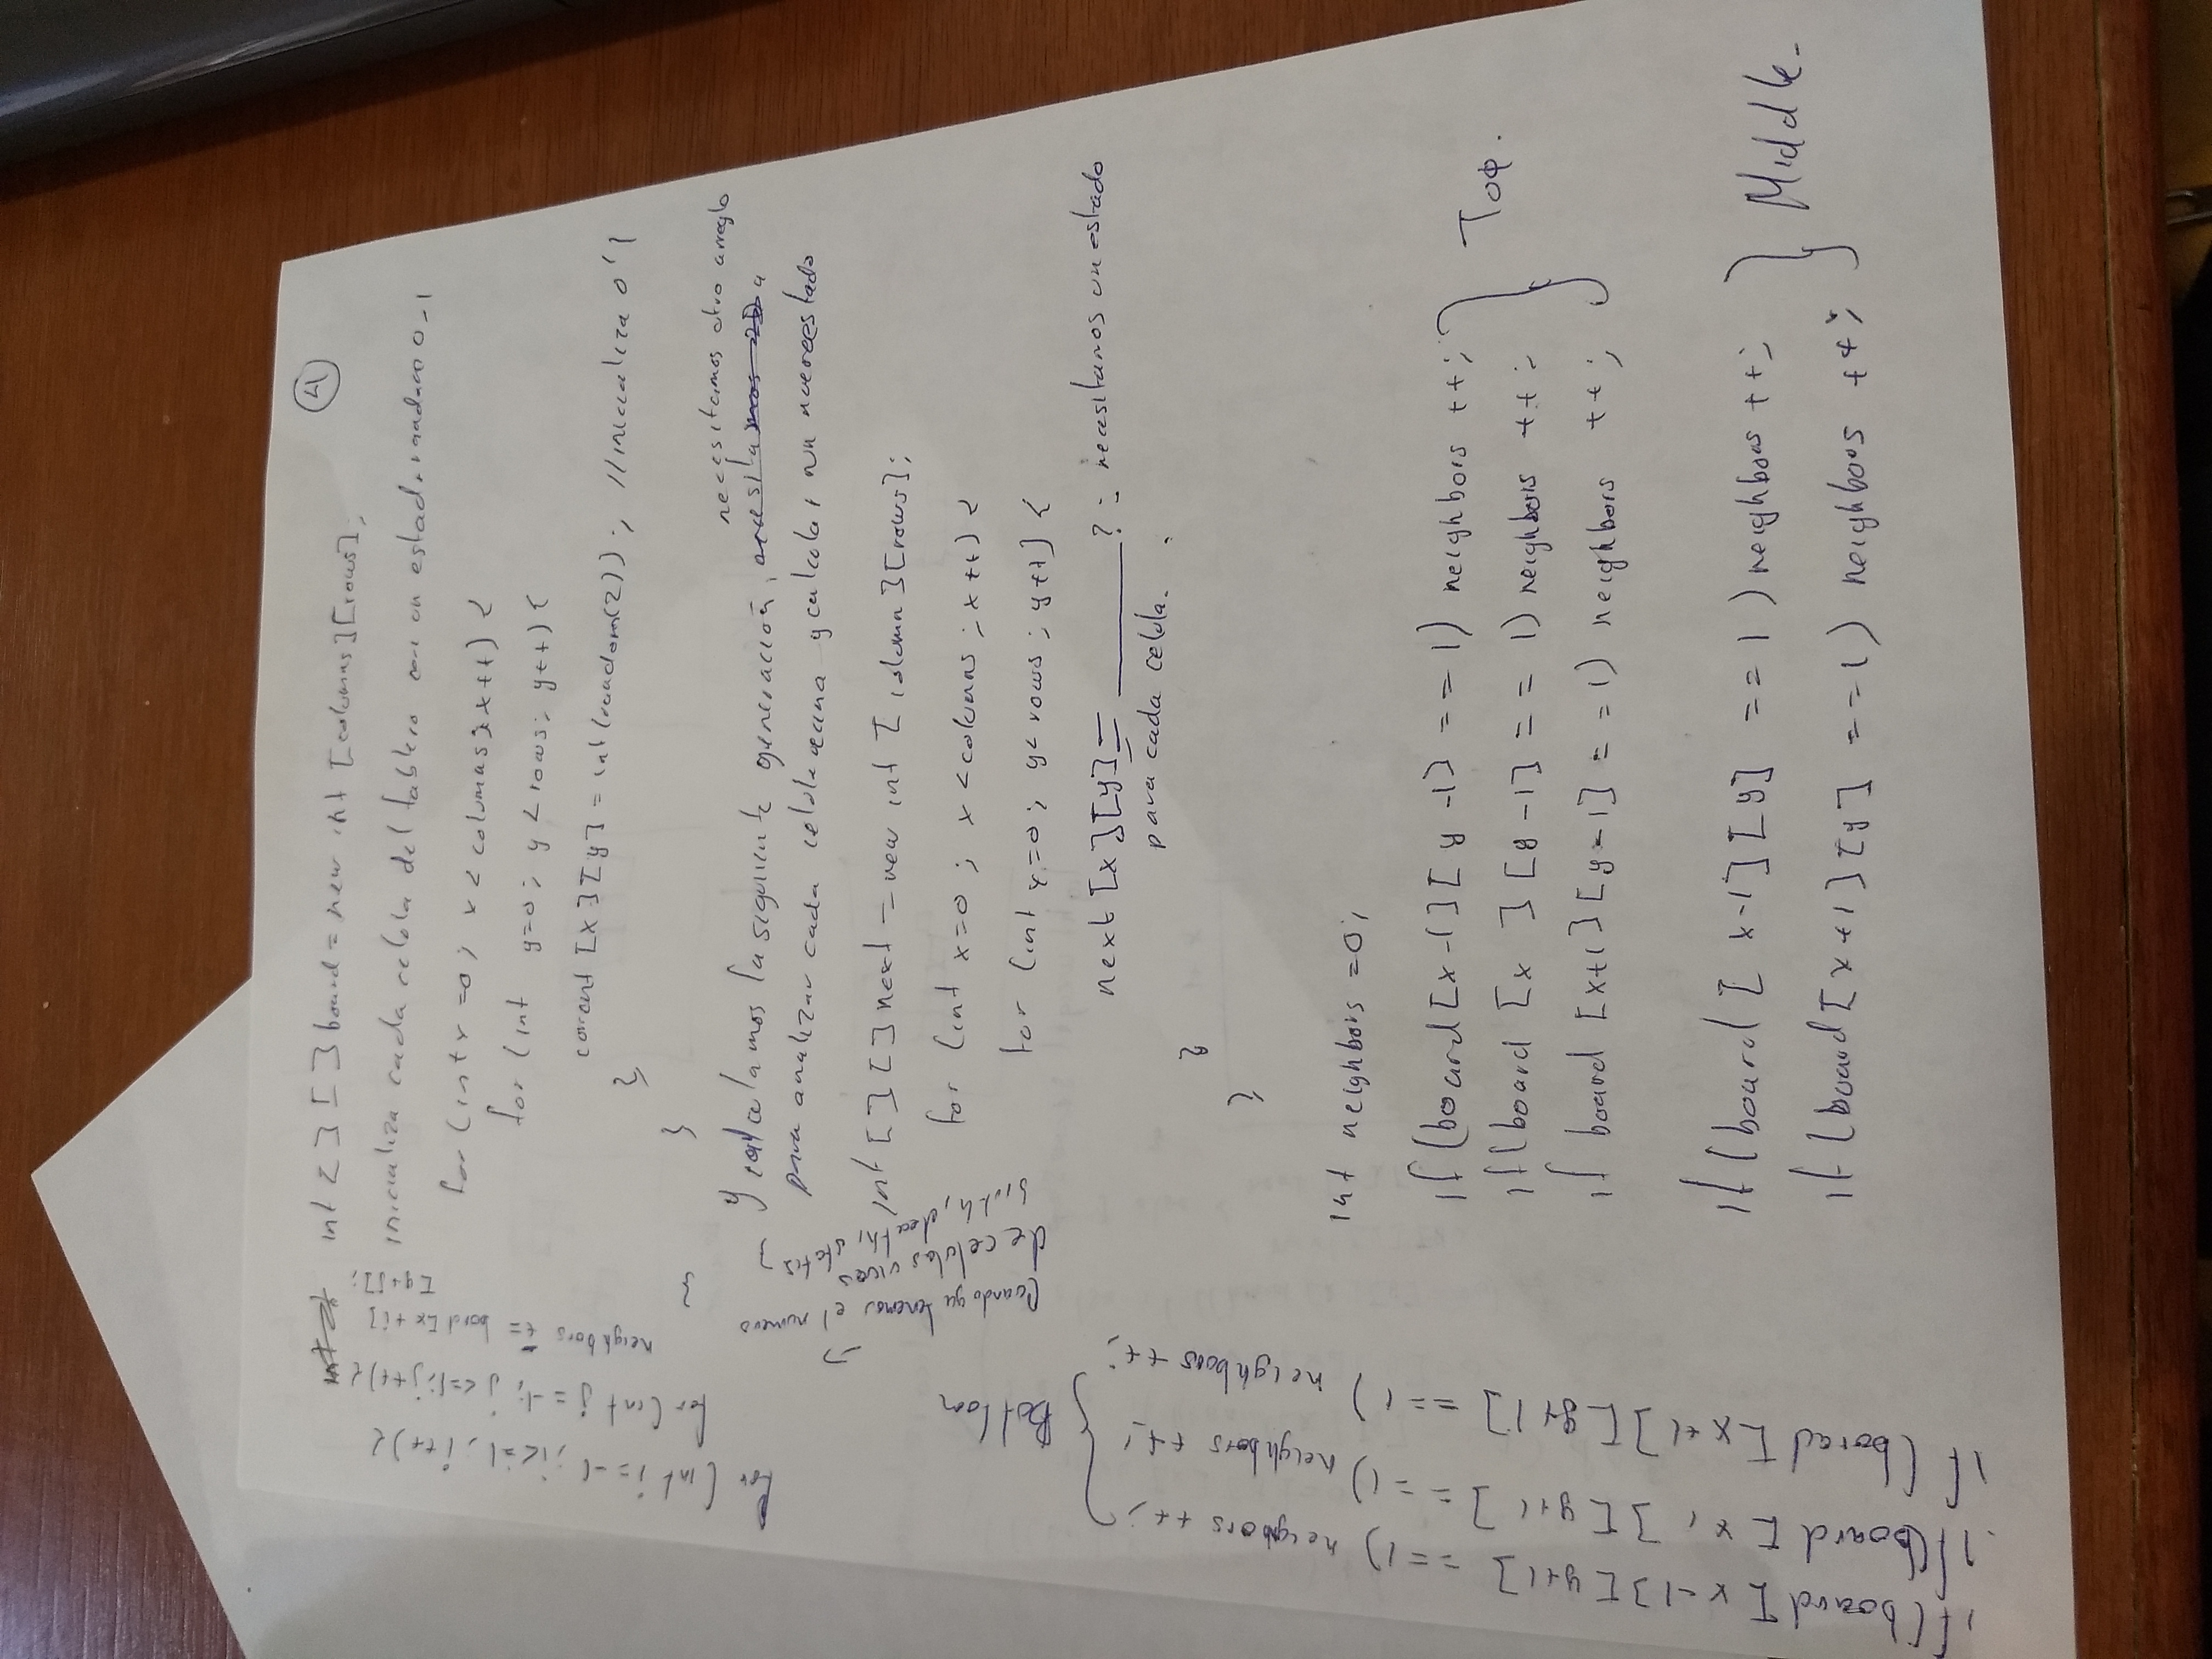 4
int [][] board = new int [columns][rows];
inicializa cada celula del tablero con un estado random 0-1
for (int x =0; x < columns; x++) {
for (int y=0; y < rows; y++) {
current [x][y] = int(random(2)); //inicializa 0'1
}
}
necesitamos otro arreglo
y calculamos la siguiente generación,
para analizar cada celula vecina y calcular un nuevo estado
int [][] next = new int [column][rows];
for (int x=0; x < columns; x++) {
for (int y=0; y < rows; y++) {
next [x][y] = ______? : necesitamos un estado
para cada celula.
}
}
int neighbors =0;
if (board [x-1][y-1] == 1) neighbors ++;
if (board [x ][y-1] == 1) neighbors ++;
if board [x+1][y-1] == 1) neighbors ++;
Top.
if (board [x-1][y] == 1) neighbors ++;
if (board [x+1][y] == 1) neighbors ++;
Middle.
if (board [x-1][y+1] == 1) neighbors ++;
if (board [x, ][y+1] == 1) neighbors ++;
if (borad [x+1][y+1] == 1) neighbors ++;
Bottom
for (int i = -1; i<=1; i++) {
for (int j = -1; j <=1; j++) {
neighbors += bord [x+i]
[y+j];
}
}
Cuando ya tenemos el numero
de celulas vivas